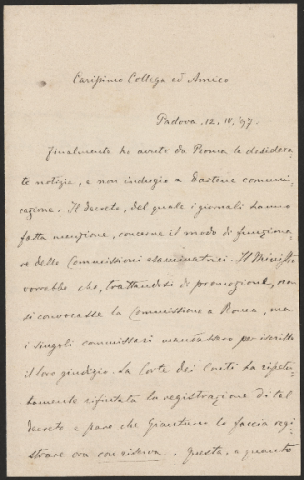 Carissimo Collega ed Amico
Padova, 12. IV. '97.
Finalmente ho avute da Roma le desidera-
te notizie, e non indugio a dartene comuni-
cazione. Il decreto, del quale i giornali hanno
fatta menzione, concerne il modo di funziona-
re delle Commissioni esaminatrici. Il Ministro
vorrebbe che, trattandosi di promozioni, non
si convocasse la Commissione a Roma, ma
i singoli commissari mandassero per iscritto
il loro giudizio. La Corte dei Conti ha ripetu-
tamente rifiutata la registrazione di tal
decreto e pare che Gianturco lo faccia regi-
strare con riserva. Questa, a quanto